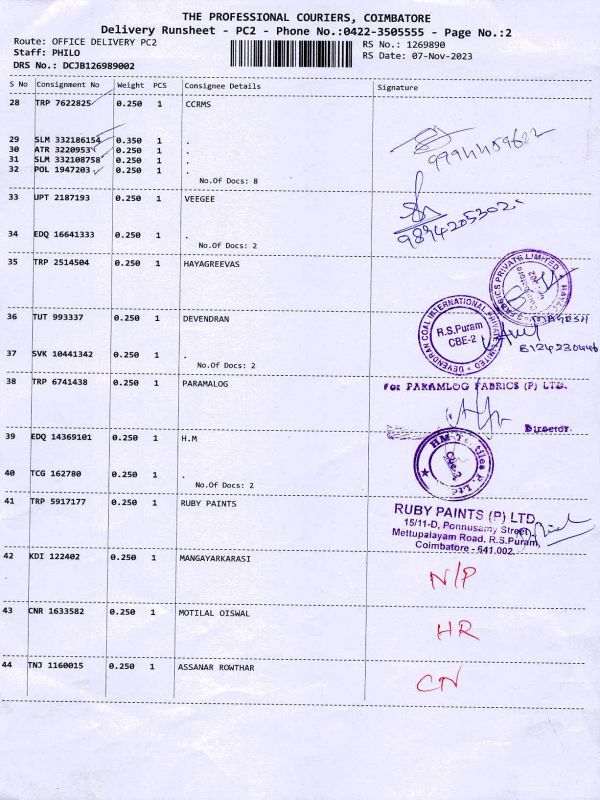 THE PROFESSIONAL COURIERS, COIMBATORE
Delivery Runsheet - PC2 - Phone No.:0422-3505555 - Page No.:2
Route: OFFICE DELIVERY PC2
Staff: PHILO
DRS No.: DCJB126989002
RS No.: 1269890
RS Date: 07-Nov-2023
S No Consignment No Weight PCS Consignee Details Signature
28 TRP 7622825 0.250 1 CCRMS
29 SLM 332186154 0.350 1 .
30 ATR 3220953 0.250 1 .
31 SLM 332108758 0.250 1 .
32 POL 1947203 0.250 1 .
No.Of Docs: 8
33 UPT 2187193 0.250 1 VEEGEE
34 EDQ 16641333 0.250 1 .
No.Of Docs: 2
9894205302
35 TRP 2514504 0.250 1 HAYAGREEVAS
36 TUT 993337 0.250 1 DEVENDRAN
DEVENDRAN COAL INTERNATIONAL PRIVATE LIMITED
R.S.Puram
CBE-2
8124230446
37 SVK 10441342 0.250 1 .
No.Of Docs: 2
38 TRP 6741438 0.250 1 PARAMALOG
For PARAMLOG FABRICS (P) LTD.
Director
39 EDQ 14369101 0.250 1 H.M
H.M. Textiles P. Ltd
Cbe-2
40 TCG 162780 0.250 1 .
No.Of Docs: 2
41 TRP 5917177 0.250 1 RUBY PAINTS
RUBY PAINTS (P) LTD
15/11-D, Ponnusamy Street,
Mettupalayam Road, R.S.Puram,
Coimbatore - 641 002.
42 KDI 122402 0.250 1 MANGAYARKARASI
N/P
43 CNR 1633582 0.250 1 MOTILAL OISWAL
HR
44 TNJ 1160015 0.250 1 ASSANAR ROWTHAR
CN